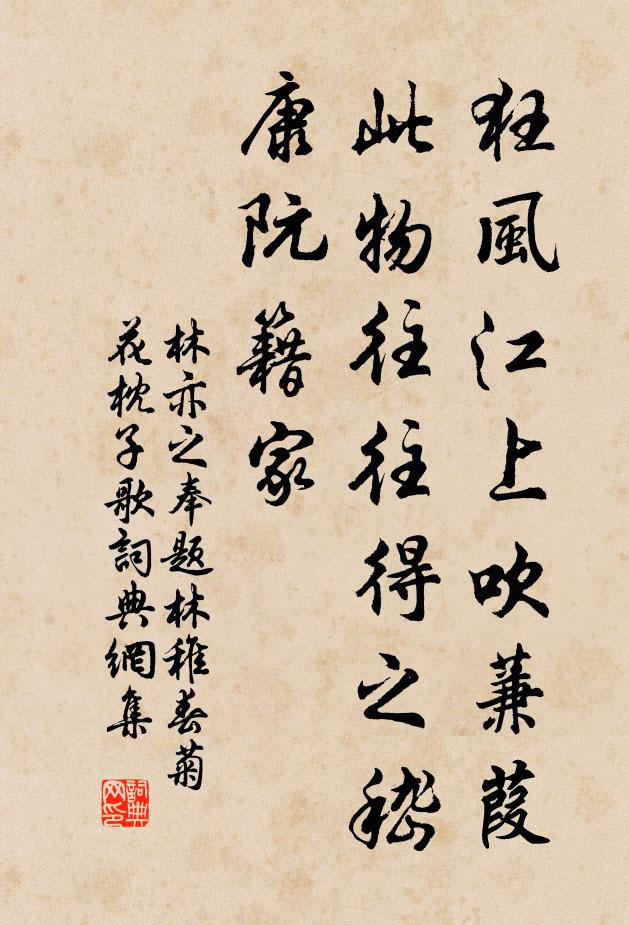 狂風江上吹蒹葭
此物往往得之嵇
康阮籍家
林亦之奉題林稚春菊
花枕子歌詞典網集
詞典网印